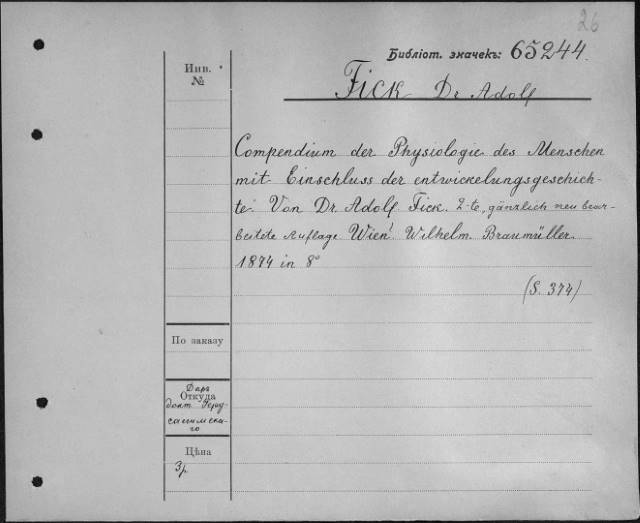 26
Библіот. значекъ: 65244.
Инв.
№
Fick Dr Adolf
Compendium der Physiologie des Menschen
mit Einschluss der entwickelungsgeschich-
te. Von Dr. Adolf Fick. 2-te, gänzlich neu bear-
beitete Auflage. Wien. Wilhelm Braumüller.
1874 in 8°
(S. 374)
По заказу
Даръ
Откуда
докт.
Цѣна
3р